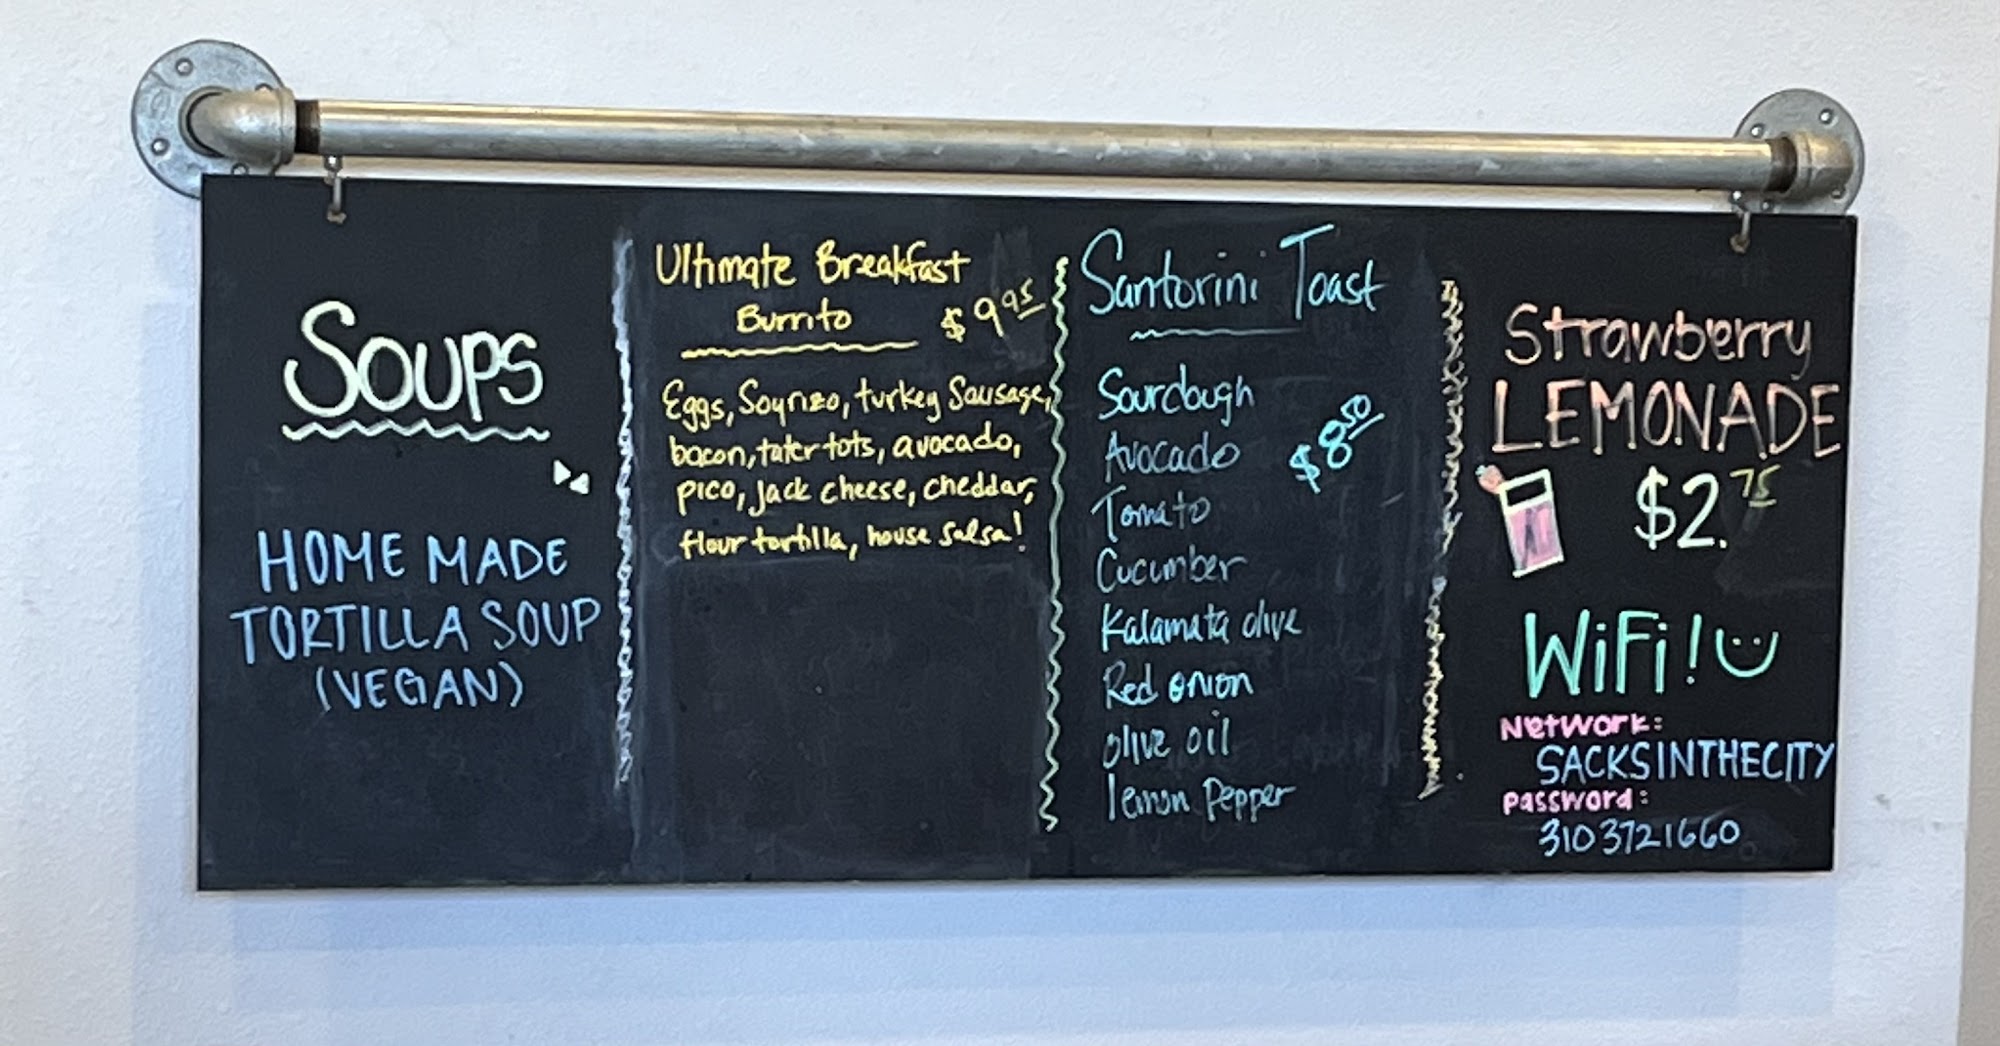 SOUPS
HOME MADE
TORTILLA SOUP
(VEGAN)
Ultimate Breakfast
Burrito
$9.95
Eggs, Soyrizo, turkey Sausage,
bacon, tater tots, avocado,
pico, jack cheese, cheddar,
flour tortilla, house salsa!
Santorini Toast
Sourdough
$8.50
Avocado
Tomato
Cucumber
Kalamata olive
Red onion
olive oil
lemon pepper
Strawberry
LEMONADE
$2.75
WiFi!
Network:
SACKSINTHECITY
Password:
3103721660